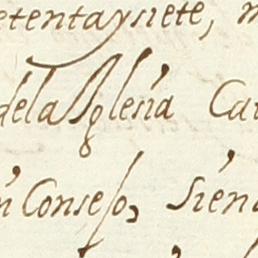 etentaysiete,
dela Yglesia Ca
n Consejo, sien